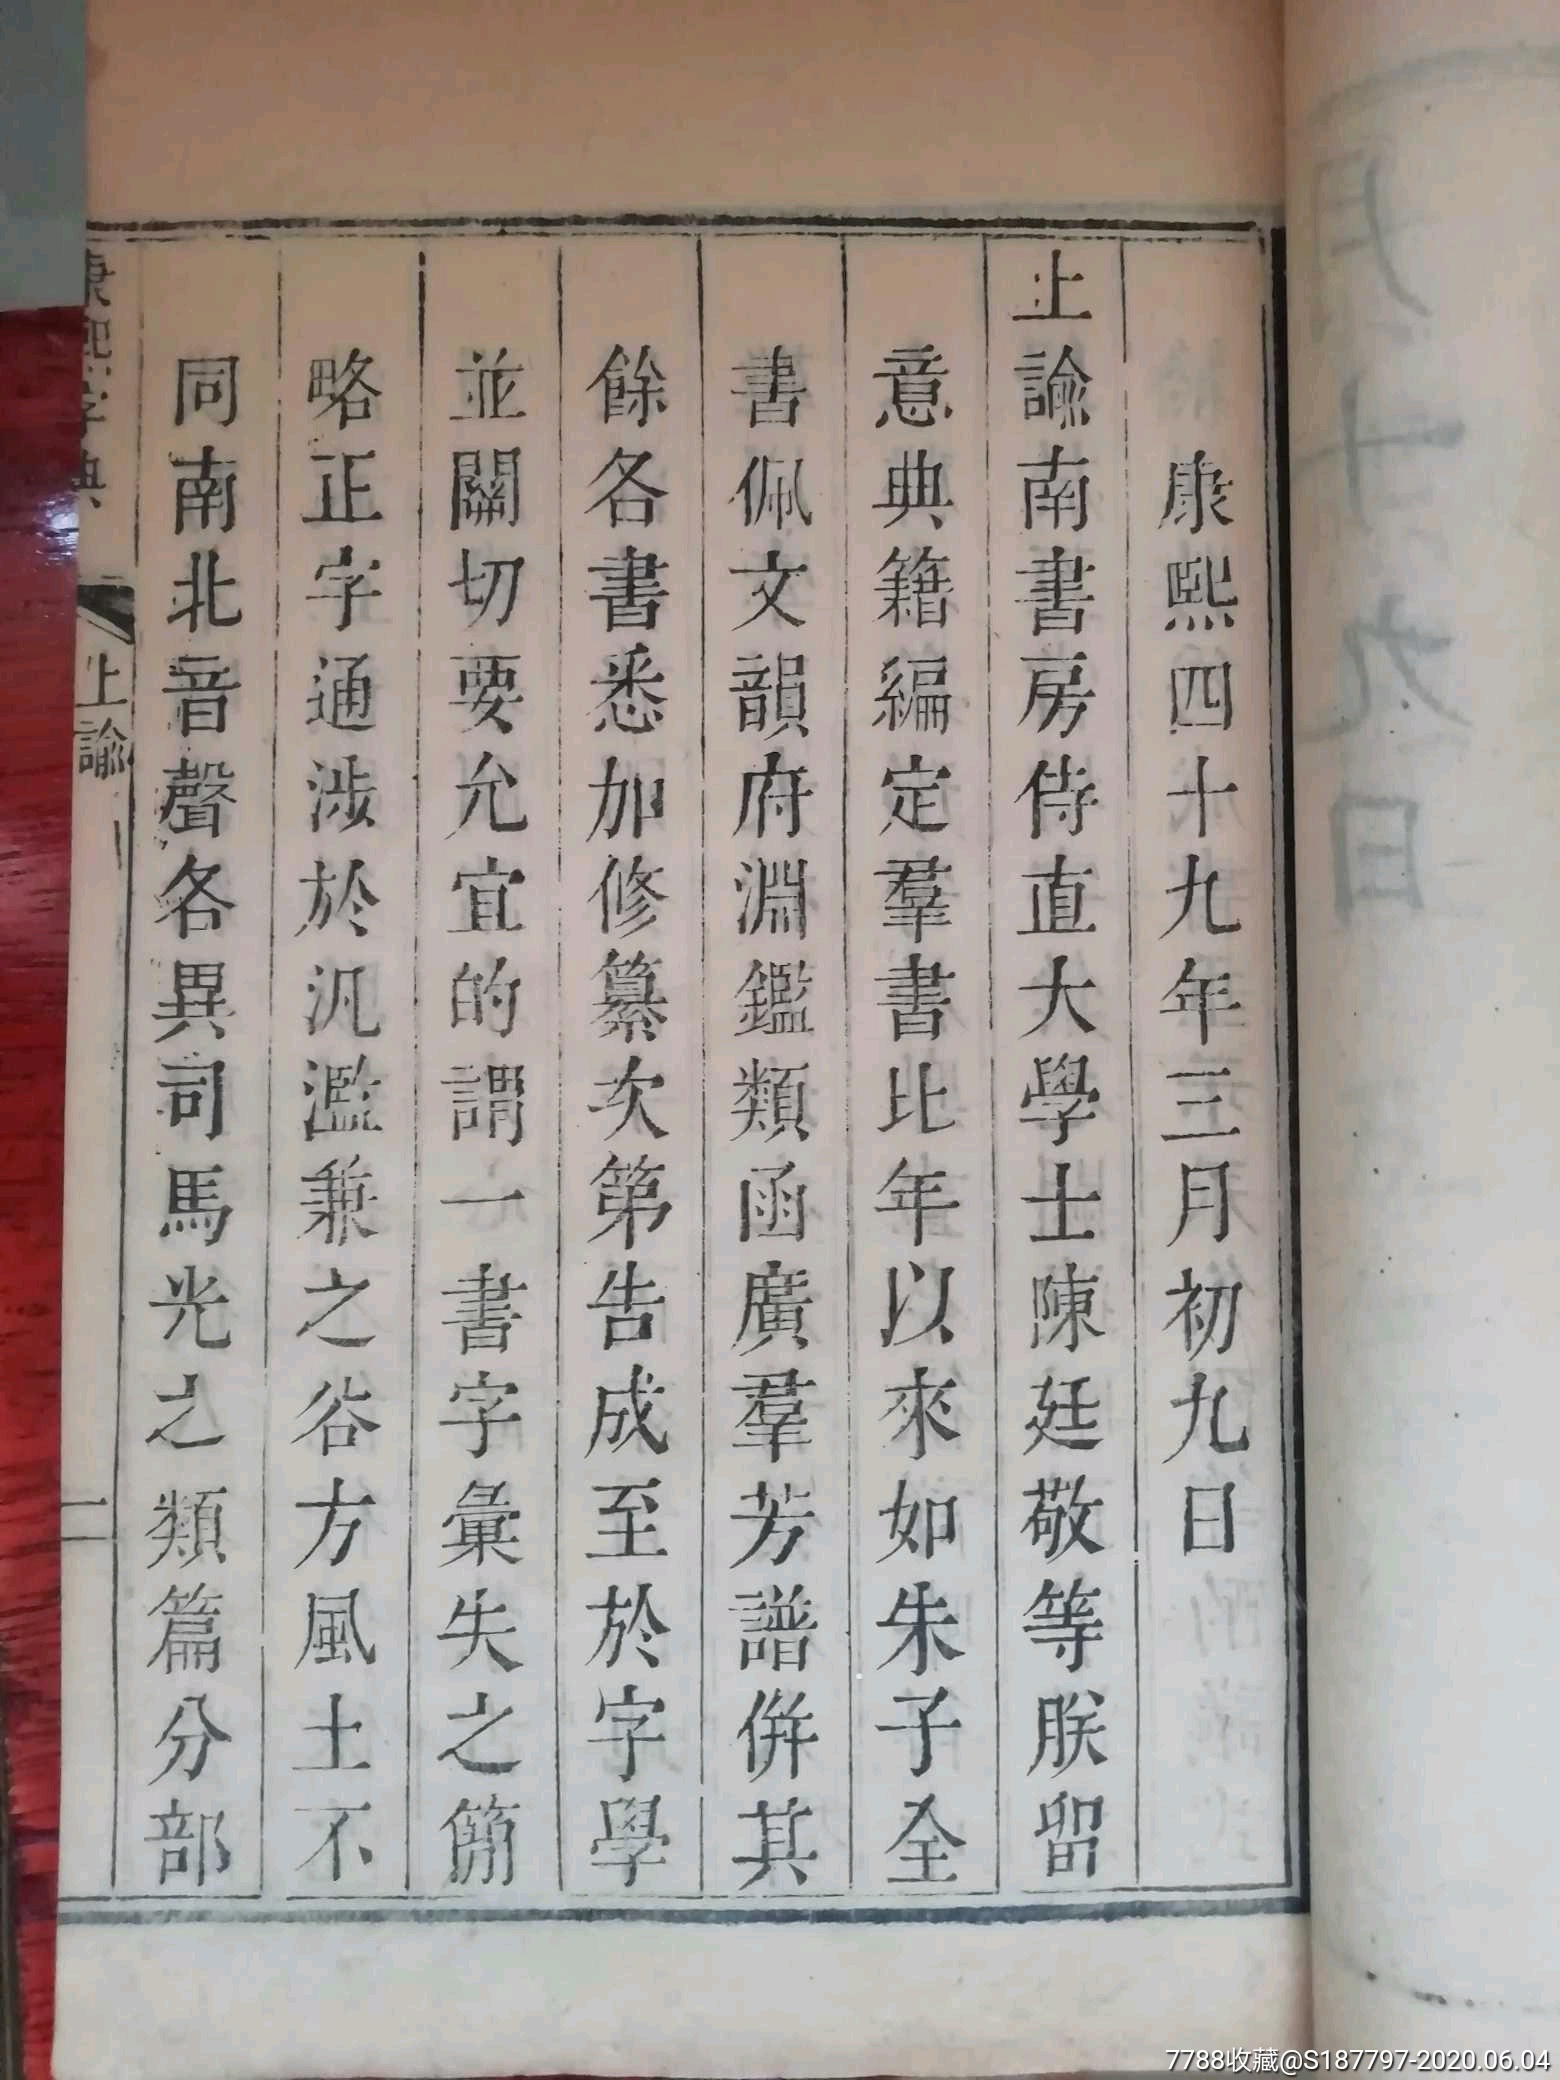 康熙四十九年三月初九日
上諭南書房侍直大學士陳廷敬等朕留
意典籍編定羣書比年以來如朱子全
書佩文韻府淵鑑類函廣羣芳譜併其
餘各書悉加修纂次第告成至於字學
並關切要允宜酌謂一書字彙失之簡
略正字通涉於汎濫兼之各方風土不
同南北音聲各異司馬光之類篇分部
康熙字典
上諭
二
月十九日
7788收藏@S187797-2020.06.04